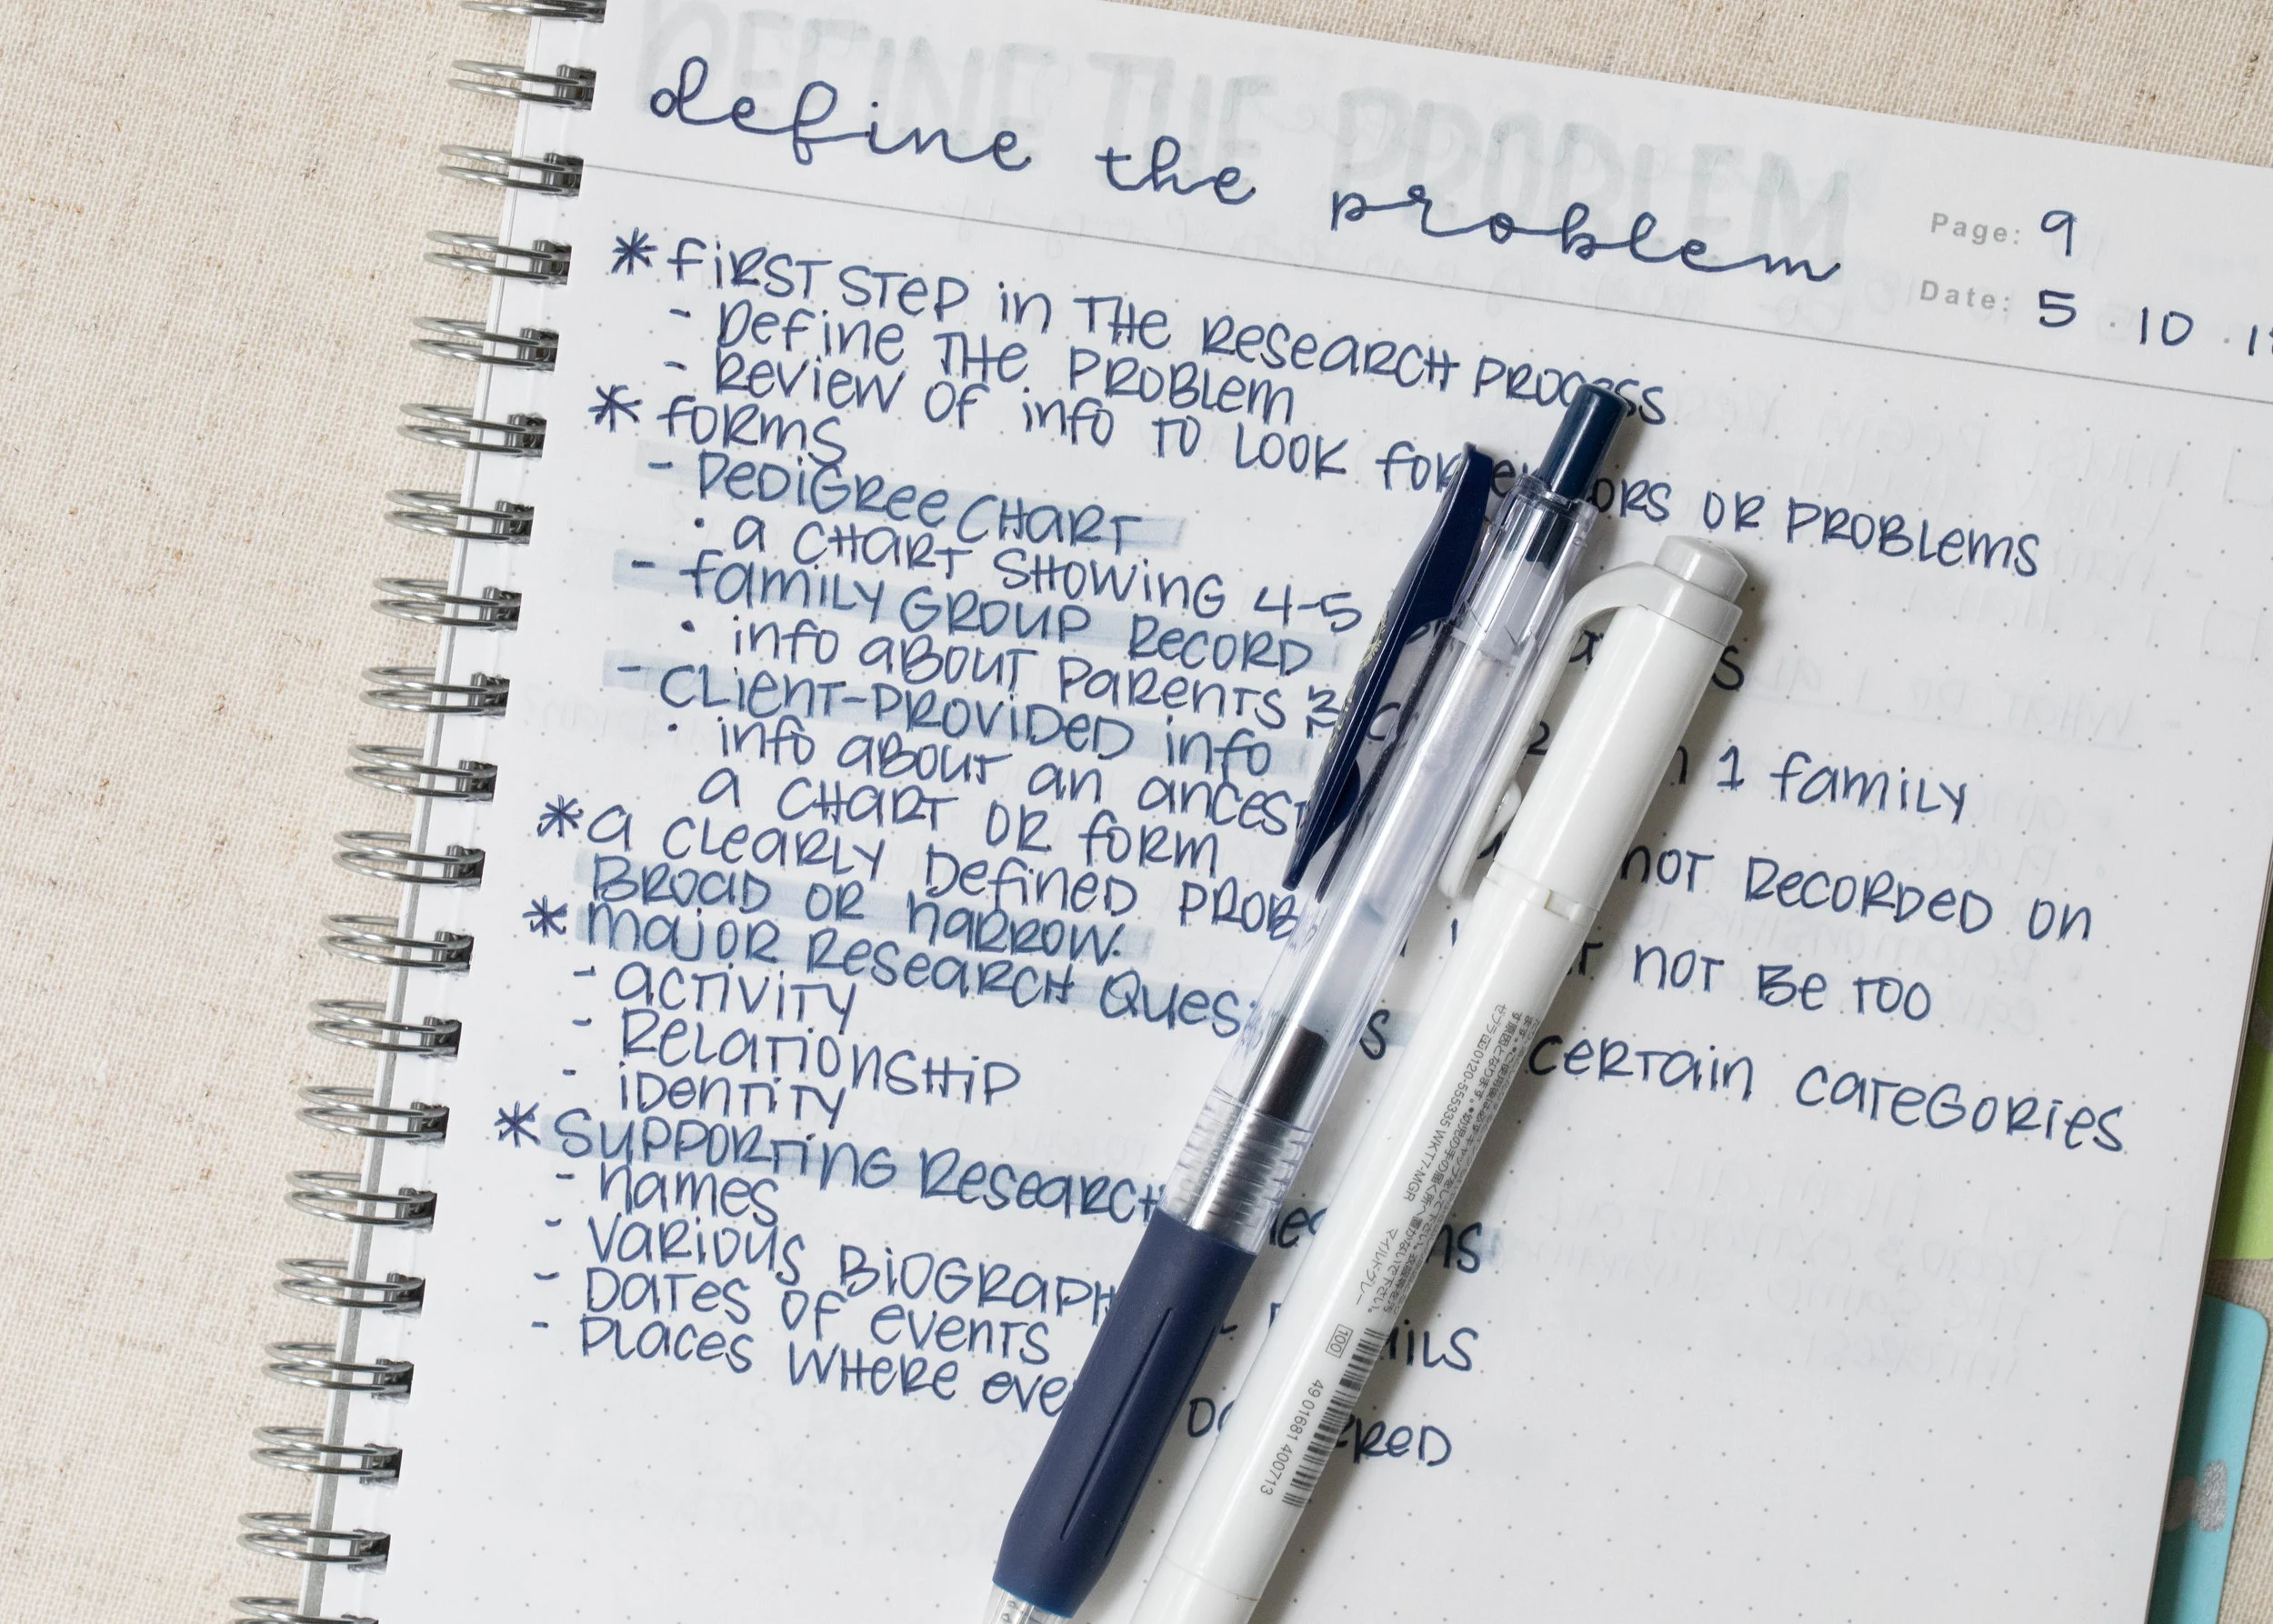 define the problem
Page: 9
Date: 5 . 10 .
* FIRST STEP in THE RESEARCH PROCESS
- DEFINE THE PROBLEM
- REVIEW OF info TO LOOK FOR ERRORS OR PROBLEMS
* FORMS
- PEDIGREE CHART
• a CHART SHOWING 4-5
- FAMILY GROUP RECORD
• info ABOUT PARENTS & 1 FAMILY
- CLIENT-PROVIDED info
• info ABOUT an NOT RECORDED ON
a CHART OR FORM
* a CLEARLY DEFINED NOT BE TOO
BROAD OR NARROW.
* MAJOR RESEARCH CERTAIN CATEGORIES
- ACTIVITY
- RELATIONSHIP
- IDENTITY
* SUPPORTING RESEARCH
- NAMES
- VARIOUS
- DATES OF EVENTS
- PLACES WHERE
0120-555335 WKT7-MGR
マイルドグレー
100
4901681400713